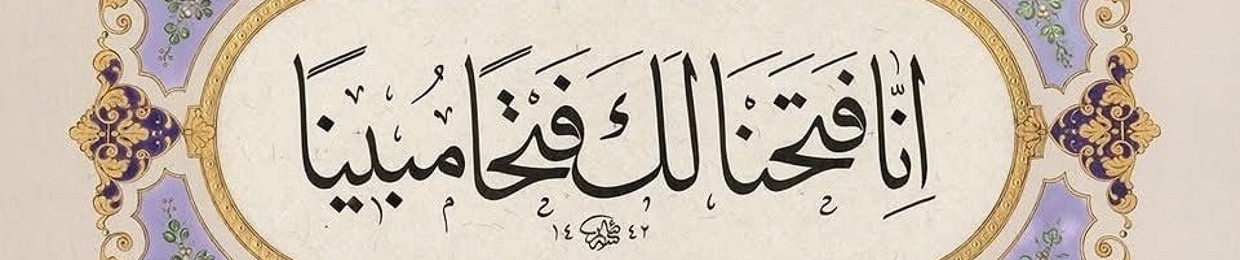 اِنَّا فَتَحْنَا لَكَ فَتْحًا مُبينًا
١٤ ٤٢